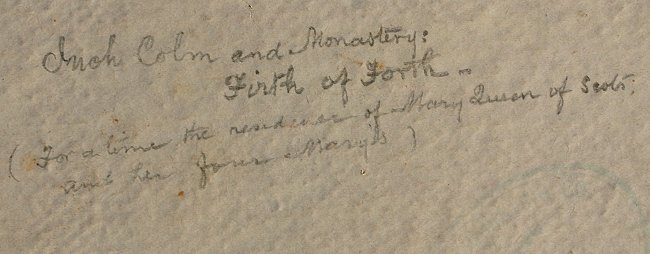 Inch Colm and Monastery:
Firth of Forth –
(For a time the residence of Mary Queen of Scots,
and her four Marys)